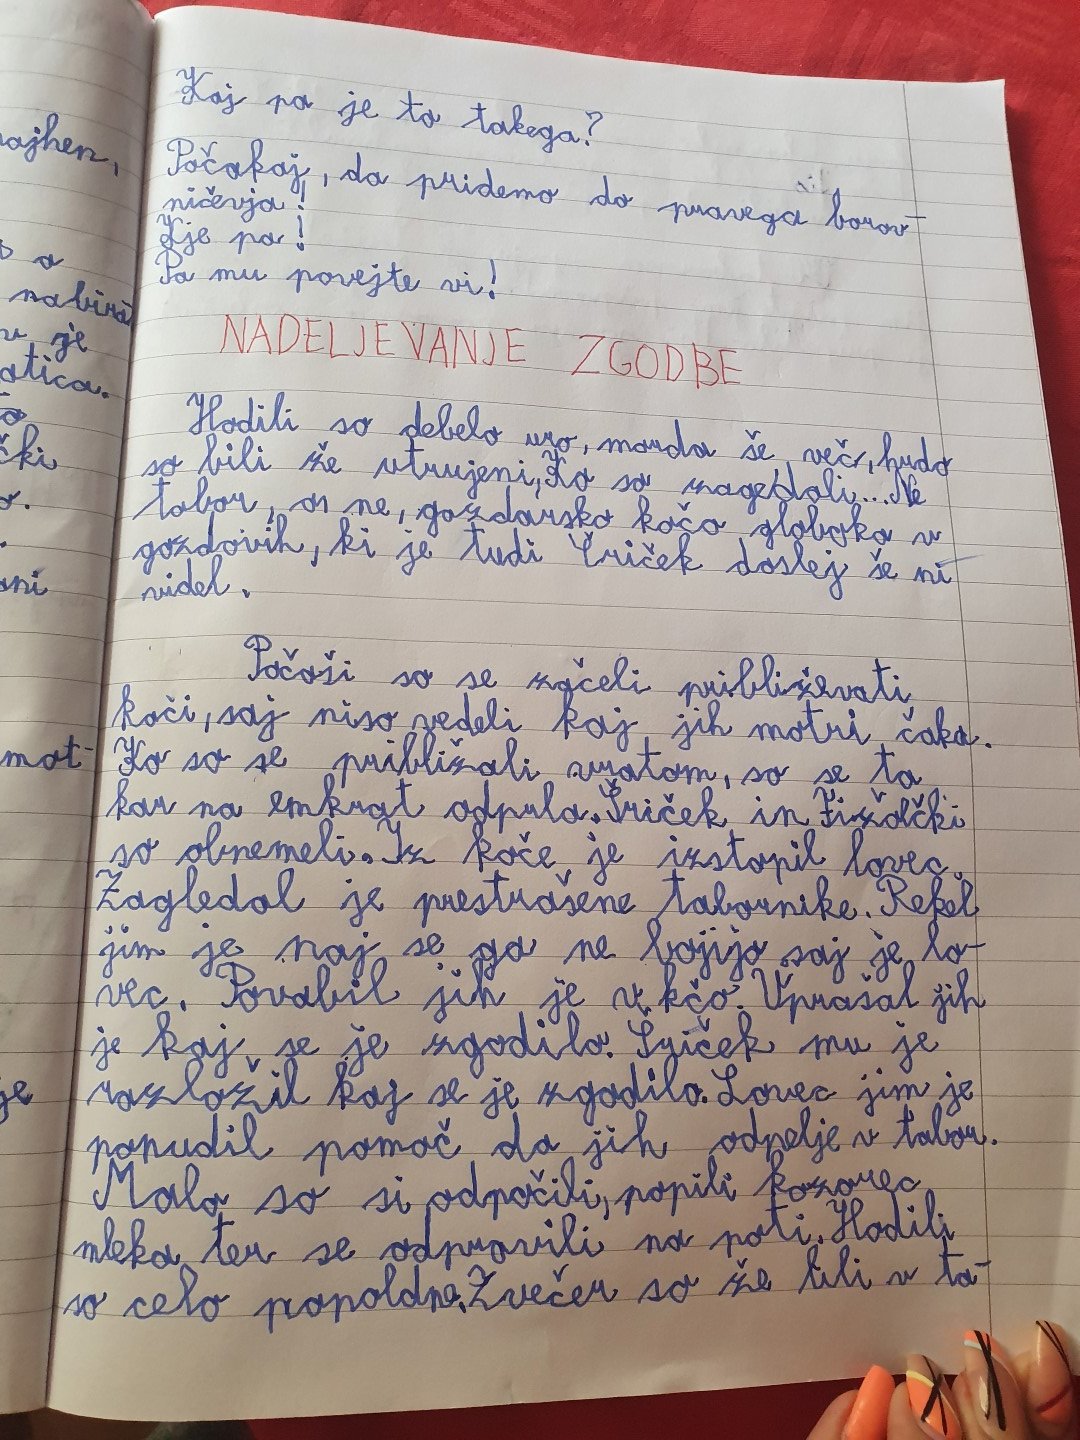 Kaj pa je to takega?
Počakaj, da pridemo do pravega borov-
ničevja!
Kje pa!
Pa mu povejte vi!
NADELJEVANJE ZGODBE
Hodili so debelo uro, morda še več, hudo
so bili že utrujeni, Ko so zagledali... Ne
tabor, oh ne, gozdarsko kočo globoko v
gozdovih, ki je tudi Šriček doslej še ni
videl.
Počasi so se začeli približevati
koči, saj niso vedeli kaj jih motri čaka.
Ko so se približali vratom, so se ta
kar na emkrat odprla. Šriček in Fižolčki
so obnemeli. Iz koče je izstopil lovec.
Zagledal je prestrašene tabornike. Rekel
jim je naj se ga ne bojijo saj je lo-
vec. Povabil jih je v kčo. Vprašal jih
je kaj se je zgodilo. Šriček mu je
razložil kaj se je zgodilo. Lovec jim je
ponudil pomoč da jih odpelje v tabor.
Malo so si odpočili, popili kozarec
mleka ter se odpravili na poti. Hodili
so celo popoldne. Zvečer so že bili v ta-
majhen,
o a
nabira
v je
atica.
to
čki
o.
ani
mot-
je